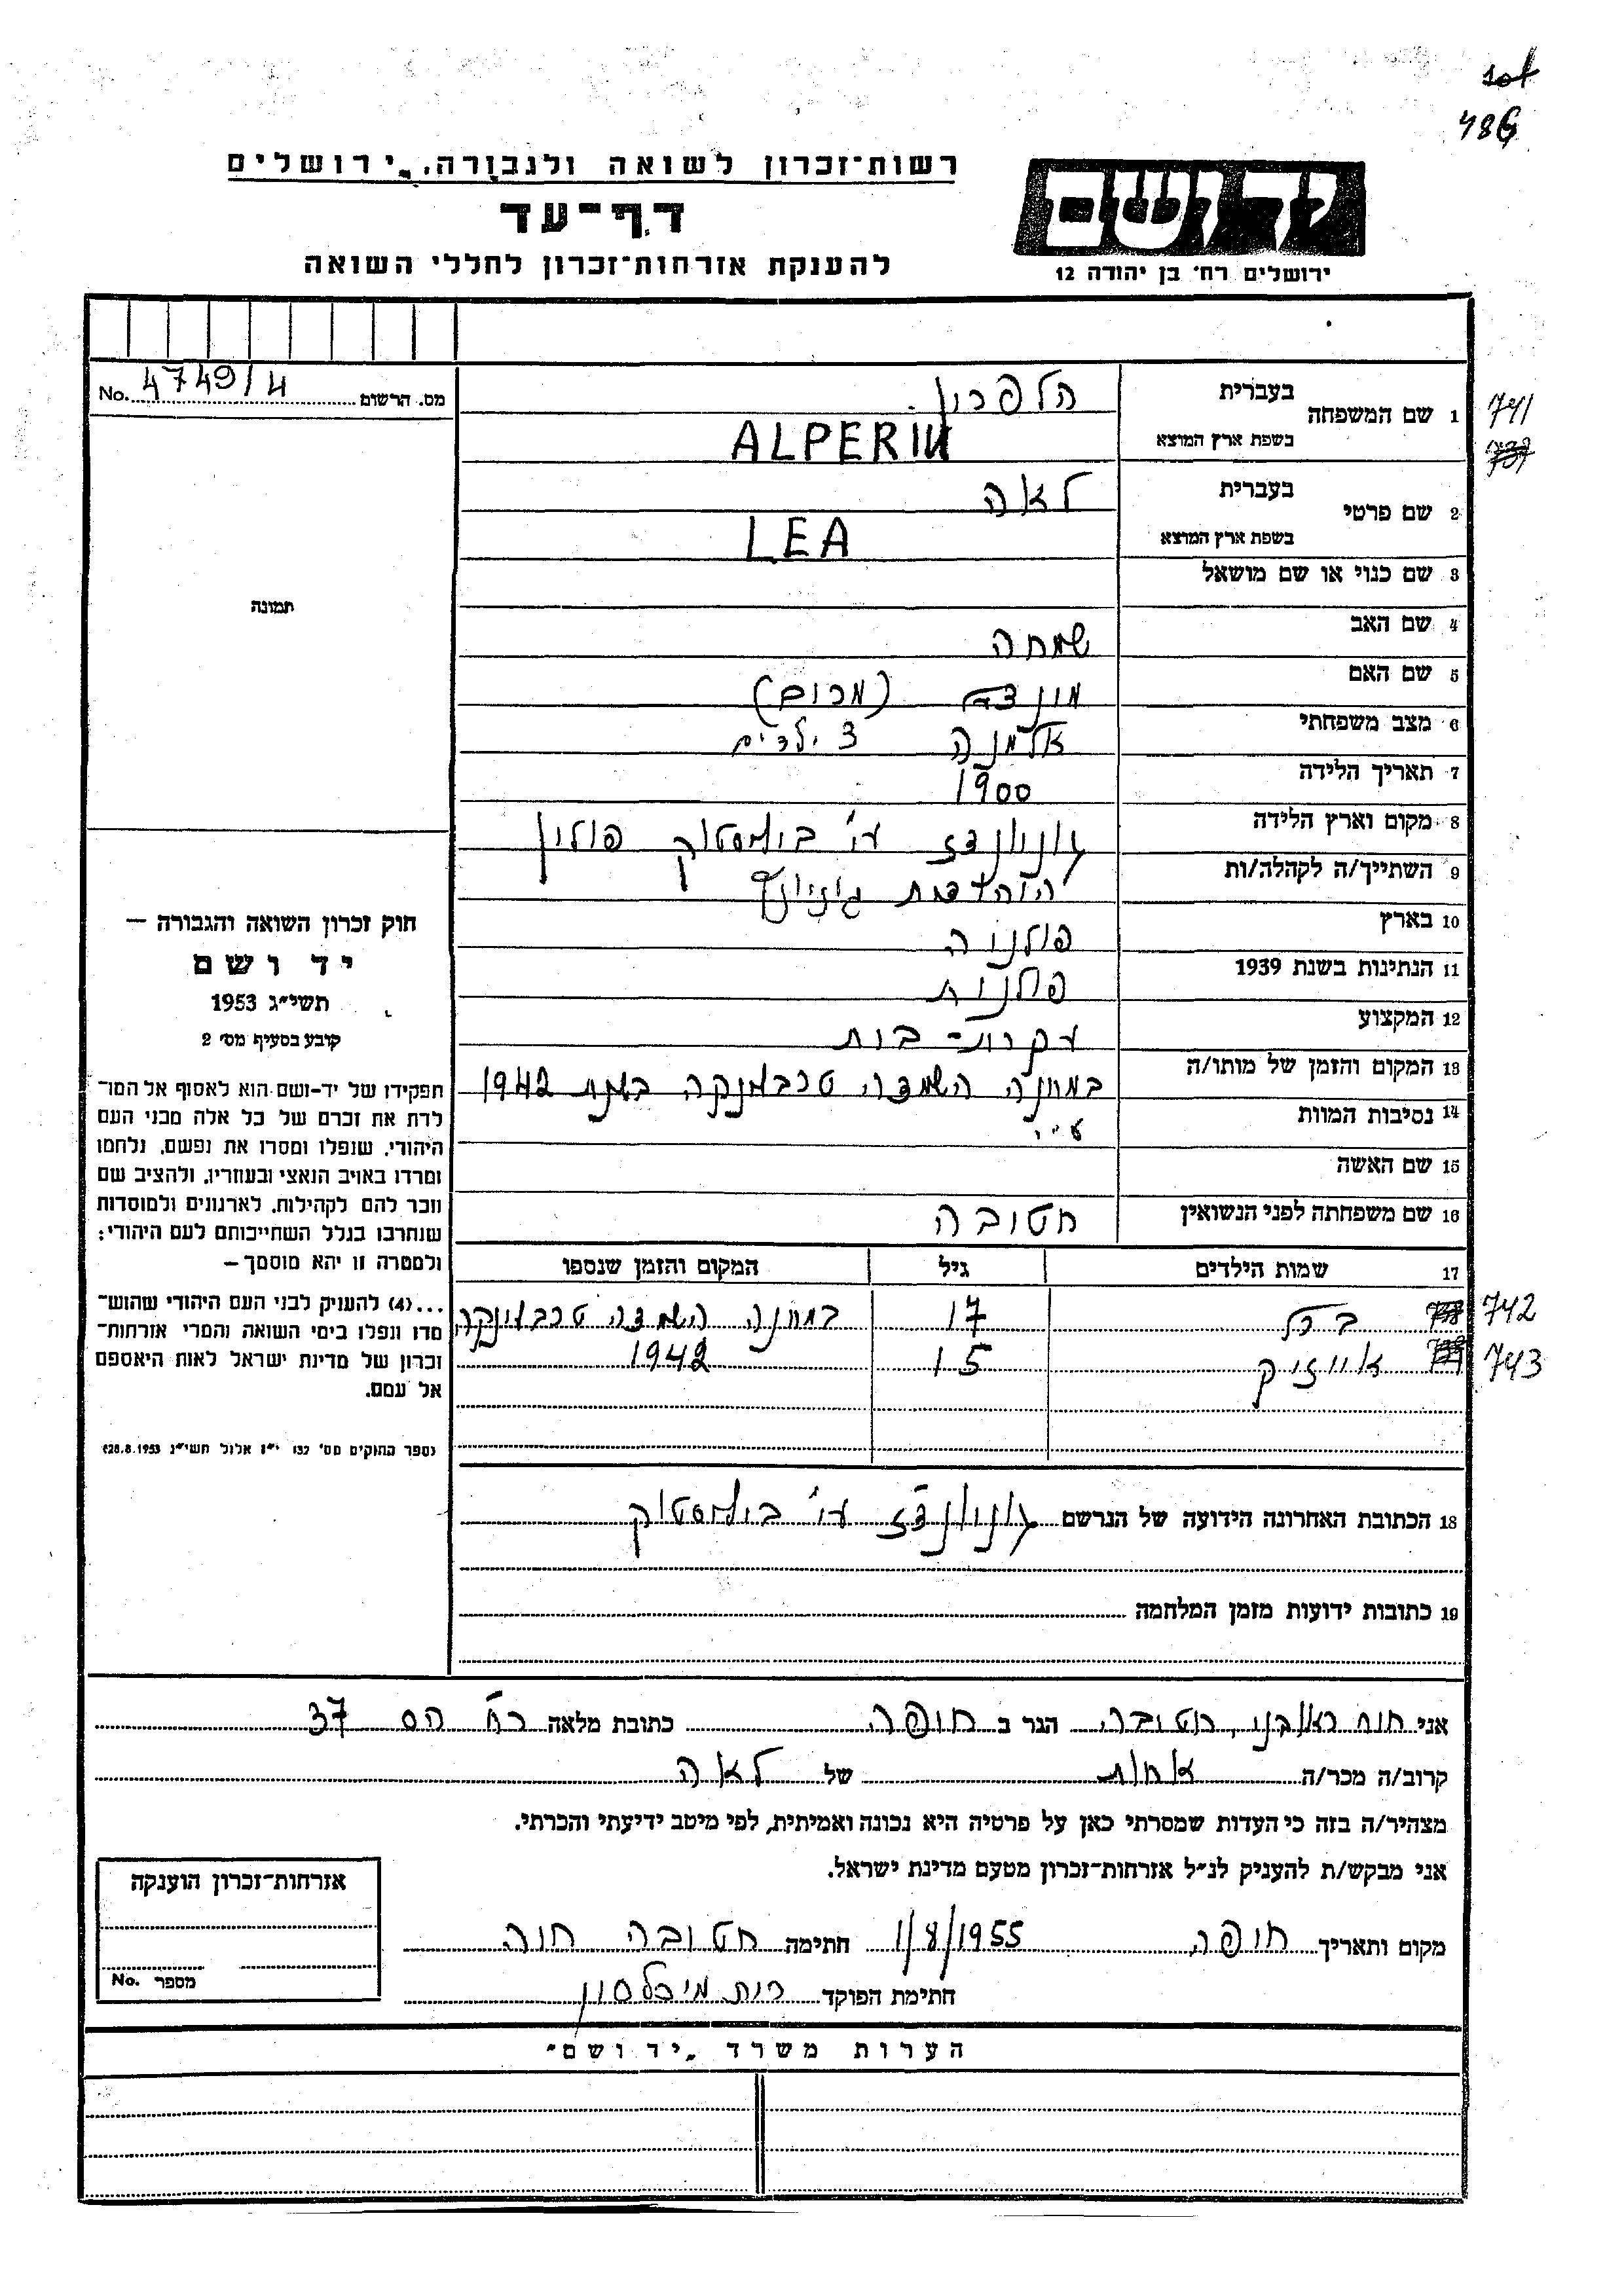 486
רשות־זכרון לשואה ולגבורה, ירושלים
יד ושם
דף־עד
להענקת אזרחות־זכרון לחללי השואה
ירושלים רח׳ בן יהודה 12
No. 4749/4 מס. הרשום
תמונה
חוק זכרון השואה והגבורה —
יד ושם
תשי״ג 1953
קובע בסעיף מס׳ 2
תפקידו של יד-ושם הוא לאסוף אל המו־
לדת את זכרם של כל אלה מבני העם
היהודי, שנפלו ומסרו את נפשם, נלחמו
ומרדו באויב הנאצי ובעוזריו, ולהציב שם
וזכר להם לקהילות, לארגונים ולמוסדות
שנחרבו בגלל השתייכותם לעם היהודי;
ולמטרה זו יהא מוסמך —
...(4) להעניק לבני העם היהודי שהוש־
מדו ונפלו בימי השואה והמרי אזרחות־
זכרון של מדינת ישראל לאות היאספם
אל עמם.
(ספר החוקים מס׳ 132 י״ז אלול תשי״ג 28.8.1953)
1 שם המשפחה בעברית הלפרין 741
בשפת ארץ המוצא ALPERIN
2 שם פרטי בעברית לאה
בשפת ארץ המוצא LEA
3 שם כנוי או שם מושאל
4 שם האב שמחה
5 שם האם
6 מצב משפחתי אלמנה 3 ילדים
7 תאריך הלידה 1900
8 מקום וארץ הלידה גוניונדז ע״י ביאליסטוק פולין
9 השתייך/ה לקהלה/ות
10 בארץ פולניה
11 הנתינות בשנת 1939 פולנית
12 המקצוע עקרת-בית
13 המקום והזמן של מותו/ה במחנה השמדה טרבלינקה בשנת 1942
14 נסיבות המוות
15 שם האשה
16 שם משפחתה לפני הנשואין חטובה
17 שמות הילדים גיל המקום והזמן שנספו
ברל 17 במחנה השמדה טרבלינקה 742
אייזיק 15 1942 743
18 הכתובת האחרונה הידועה של הנרשם גוניונדז ע״י ביאליסטוק
19 כתובות ידועות מזמן המלחמה
אני חוה ראובני, חטובה הגר ב חיפה כתובת מלאה רח׳ הס 37
קרוב/ה מכר/ה אחות של לאה
מצהיר/ה בזה כי העדות שמסרתי כאן על פרטיה היא נכונה ואמיתית, לפי מיטב ידיעתי והכרתי.
אני מבקש/ת להעניק לנ״ל אזרחות־זכרון מטעם מדינת ישראל.
מקום ותאריך חיפה 1/8/1955 חתימה חטובה חוה
חתימת הפוקד רות מיכלסון
אזרחות־זכרון הוענקה
מספר No.
הערות משרד „יד ושם״